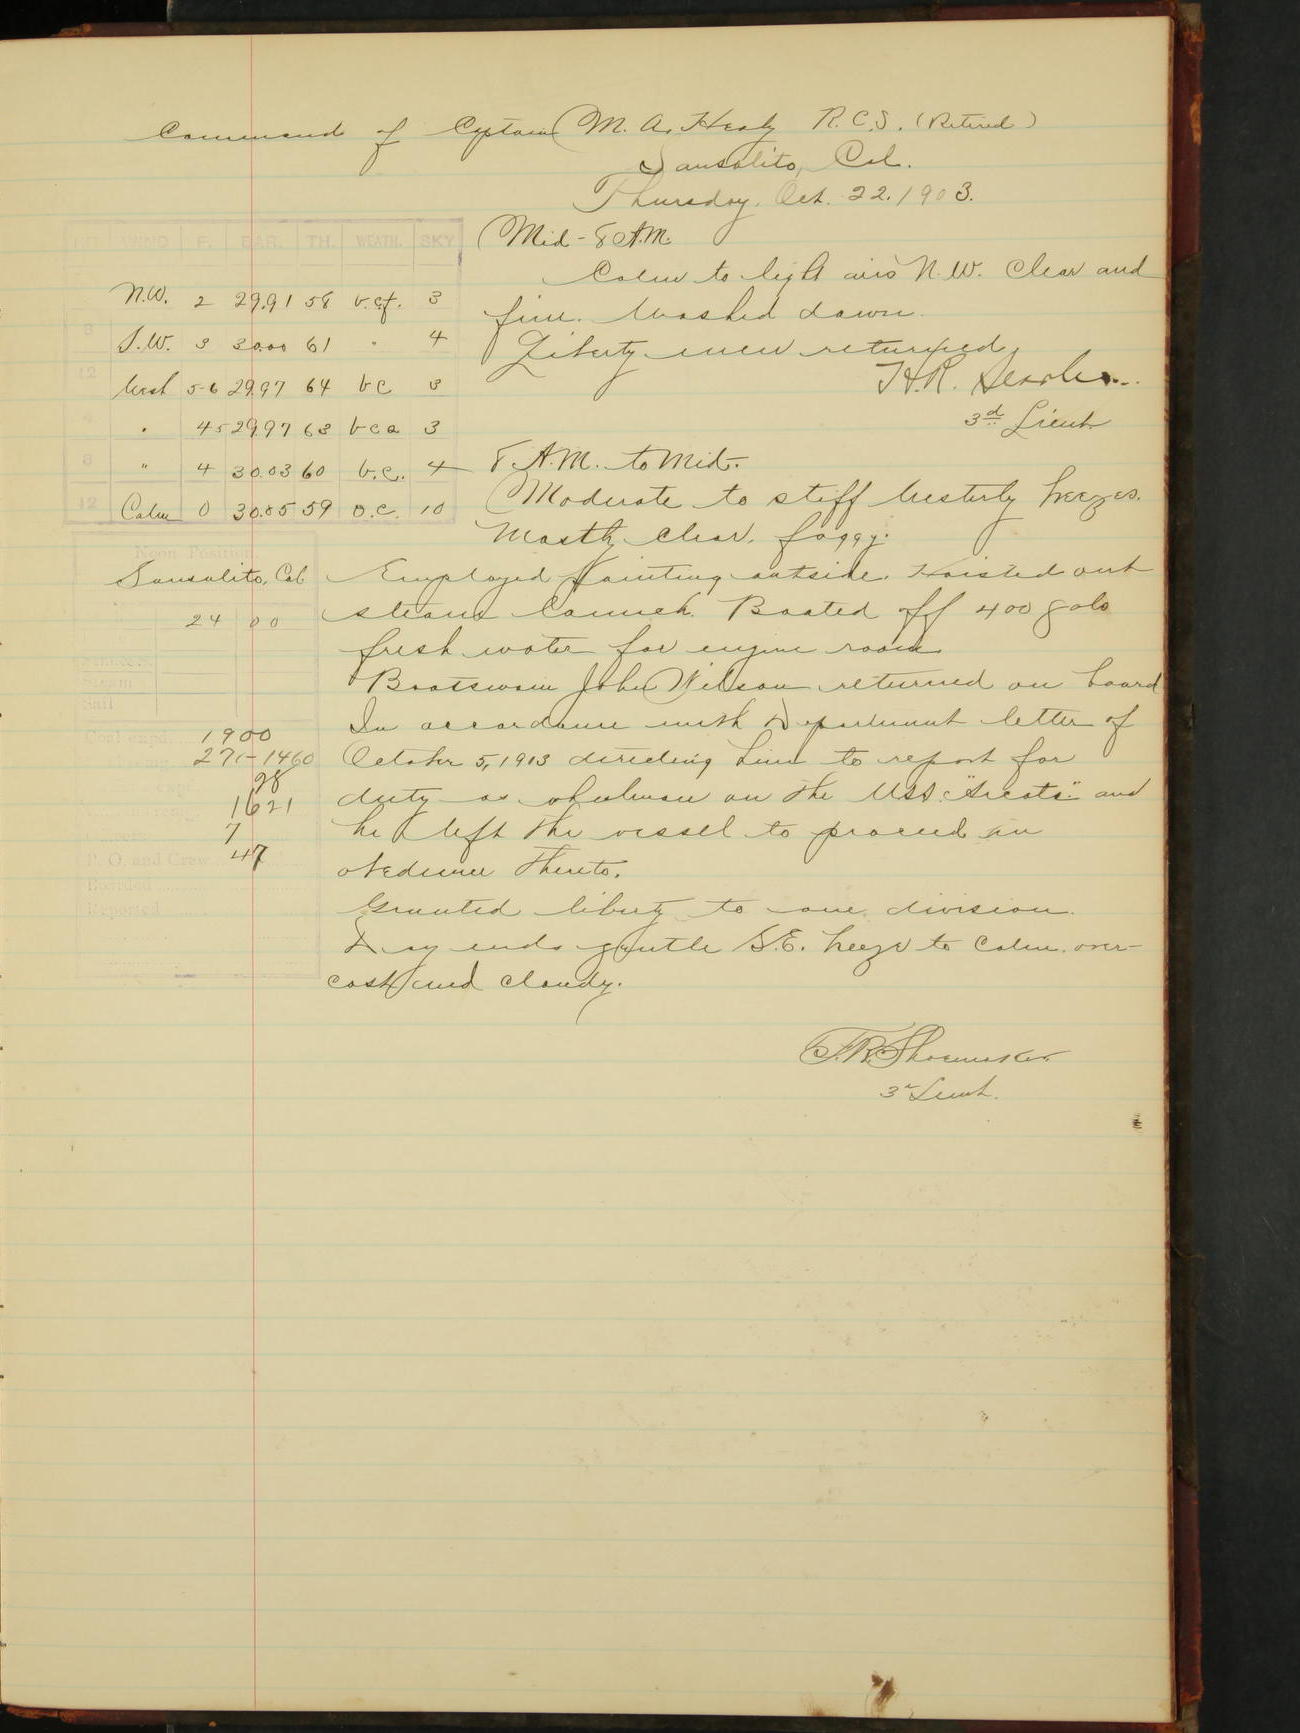 Command of Captain M. A. Healy R.C.S. (Retired)
Sausalito, Cal.
Thursday, Oct. 22. 1903.
WIND F. BAR. TH. WEATH. SKY
N.W. 2 29.91 58 b.c.f. 3
S.W. 3 30.00 61 " 4
12 West 5-6 29.97 64 b c 3
4 " 4 5 29.97 63 b c a 3
8 " 4 30.03 60 b.c. 4
12 Calm 0 30.05 59 o.c. 10
Noon Position.
Sausalito, Cal
24 00
Steam
Sail
1900
271-1460
98
1621
7
47
P. O. and Crew
Boarded
Reported
Mid - 8 A.M.
Calm to light airs N.W. Clear and
fine. Washed down.
Liberty men returned.
H.R. Searles
3d Lieut
8 A.M. to Mid.
Moderate to stiff Westerly breezes.
Mostly clear, foggy.
Employed painting outside. Hoisted out
steam launch. Boated off 400 gals
fresh water for engine room
Boatswain John Wilson returned on board
In accordance with Department letter of
October 5, 1913 directing him to report for
duty as on the and
he left the vessel to proceed in
obedience thereto.
Granted liberty to one division.
Day ends gentle S.E. breeze to calm. over-
cast and cloudy.
F.R. Shoemaker
3d Lieut.